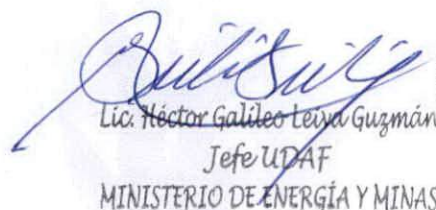 Lic. Héctor Galileo Leiva Guzmán
Jefe UDAF
MINISTERIO DE ENERGÍA Y MINAS